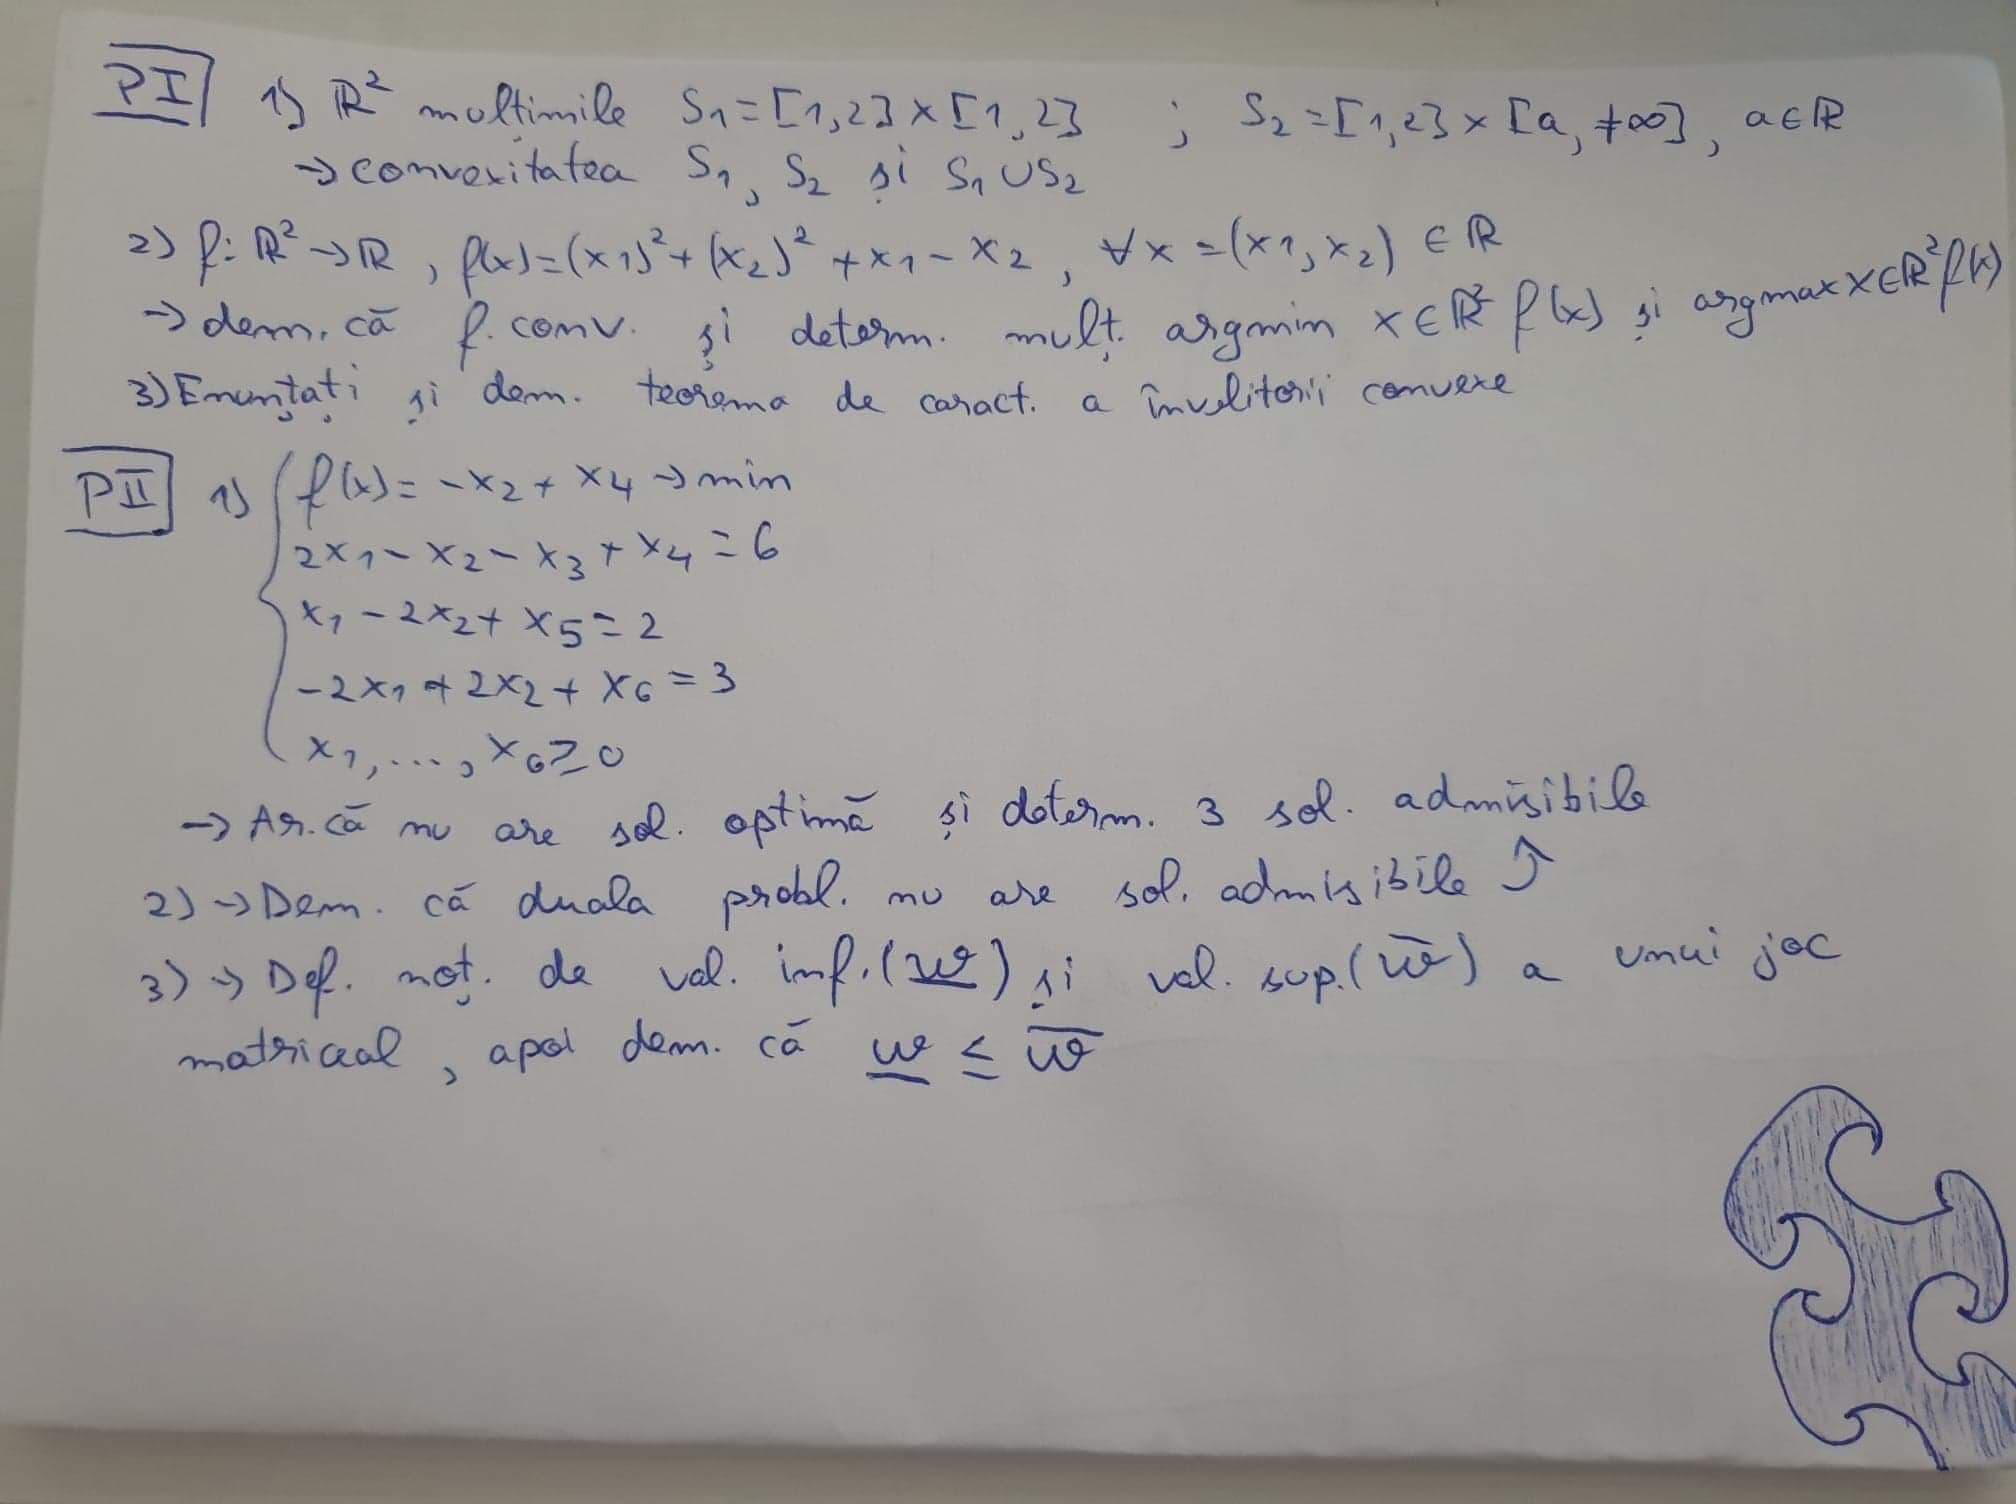 PI 1) ℝ² mulțimile S₁=[1,2]×[1,2] ; S₂=[1,2]×[a,+∞], a∈ℝ
→ convexitatea S₁, S₂ și S₁∪S₂
2) f: ℝ²→ℝ, f(x)=(x₁)²+(x₂)²+x₁-x₂, ∀x=(x₁,x₂)∈ℝ
→ dem. că f. conv. și determ. mulț. argmin x∈ℝ² f(x) și argmax x∈ℝ² f(x)
3) Enunțați și dem. teorema de caract. a învelitorii convexe
PII 1) f(x)=-x₂+x₄→min
2x₁-x₂-x₃+x₄=6
x₁-2x₂+x₅=2
-2x₁+2x₂+x₆=3
x₁,...,x₆≥0
→ Ar. că nu are sol. optimă și determ. 3 sol. admisibile
2) → Dem. că duala probl. nu are sol. admisibile ↑
3) → Def. noț. de val. inf. (w̲) și val. sup. (w̅) a unui joc
matriceal, apoi dem. că w̲ ≤ w̅